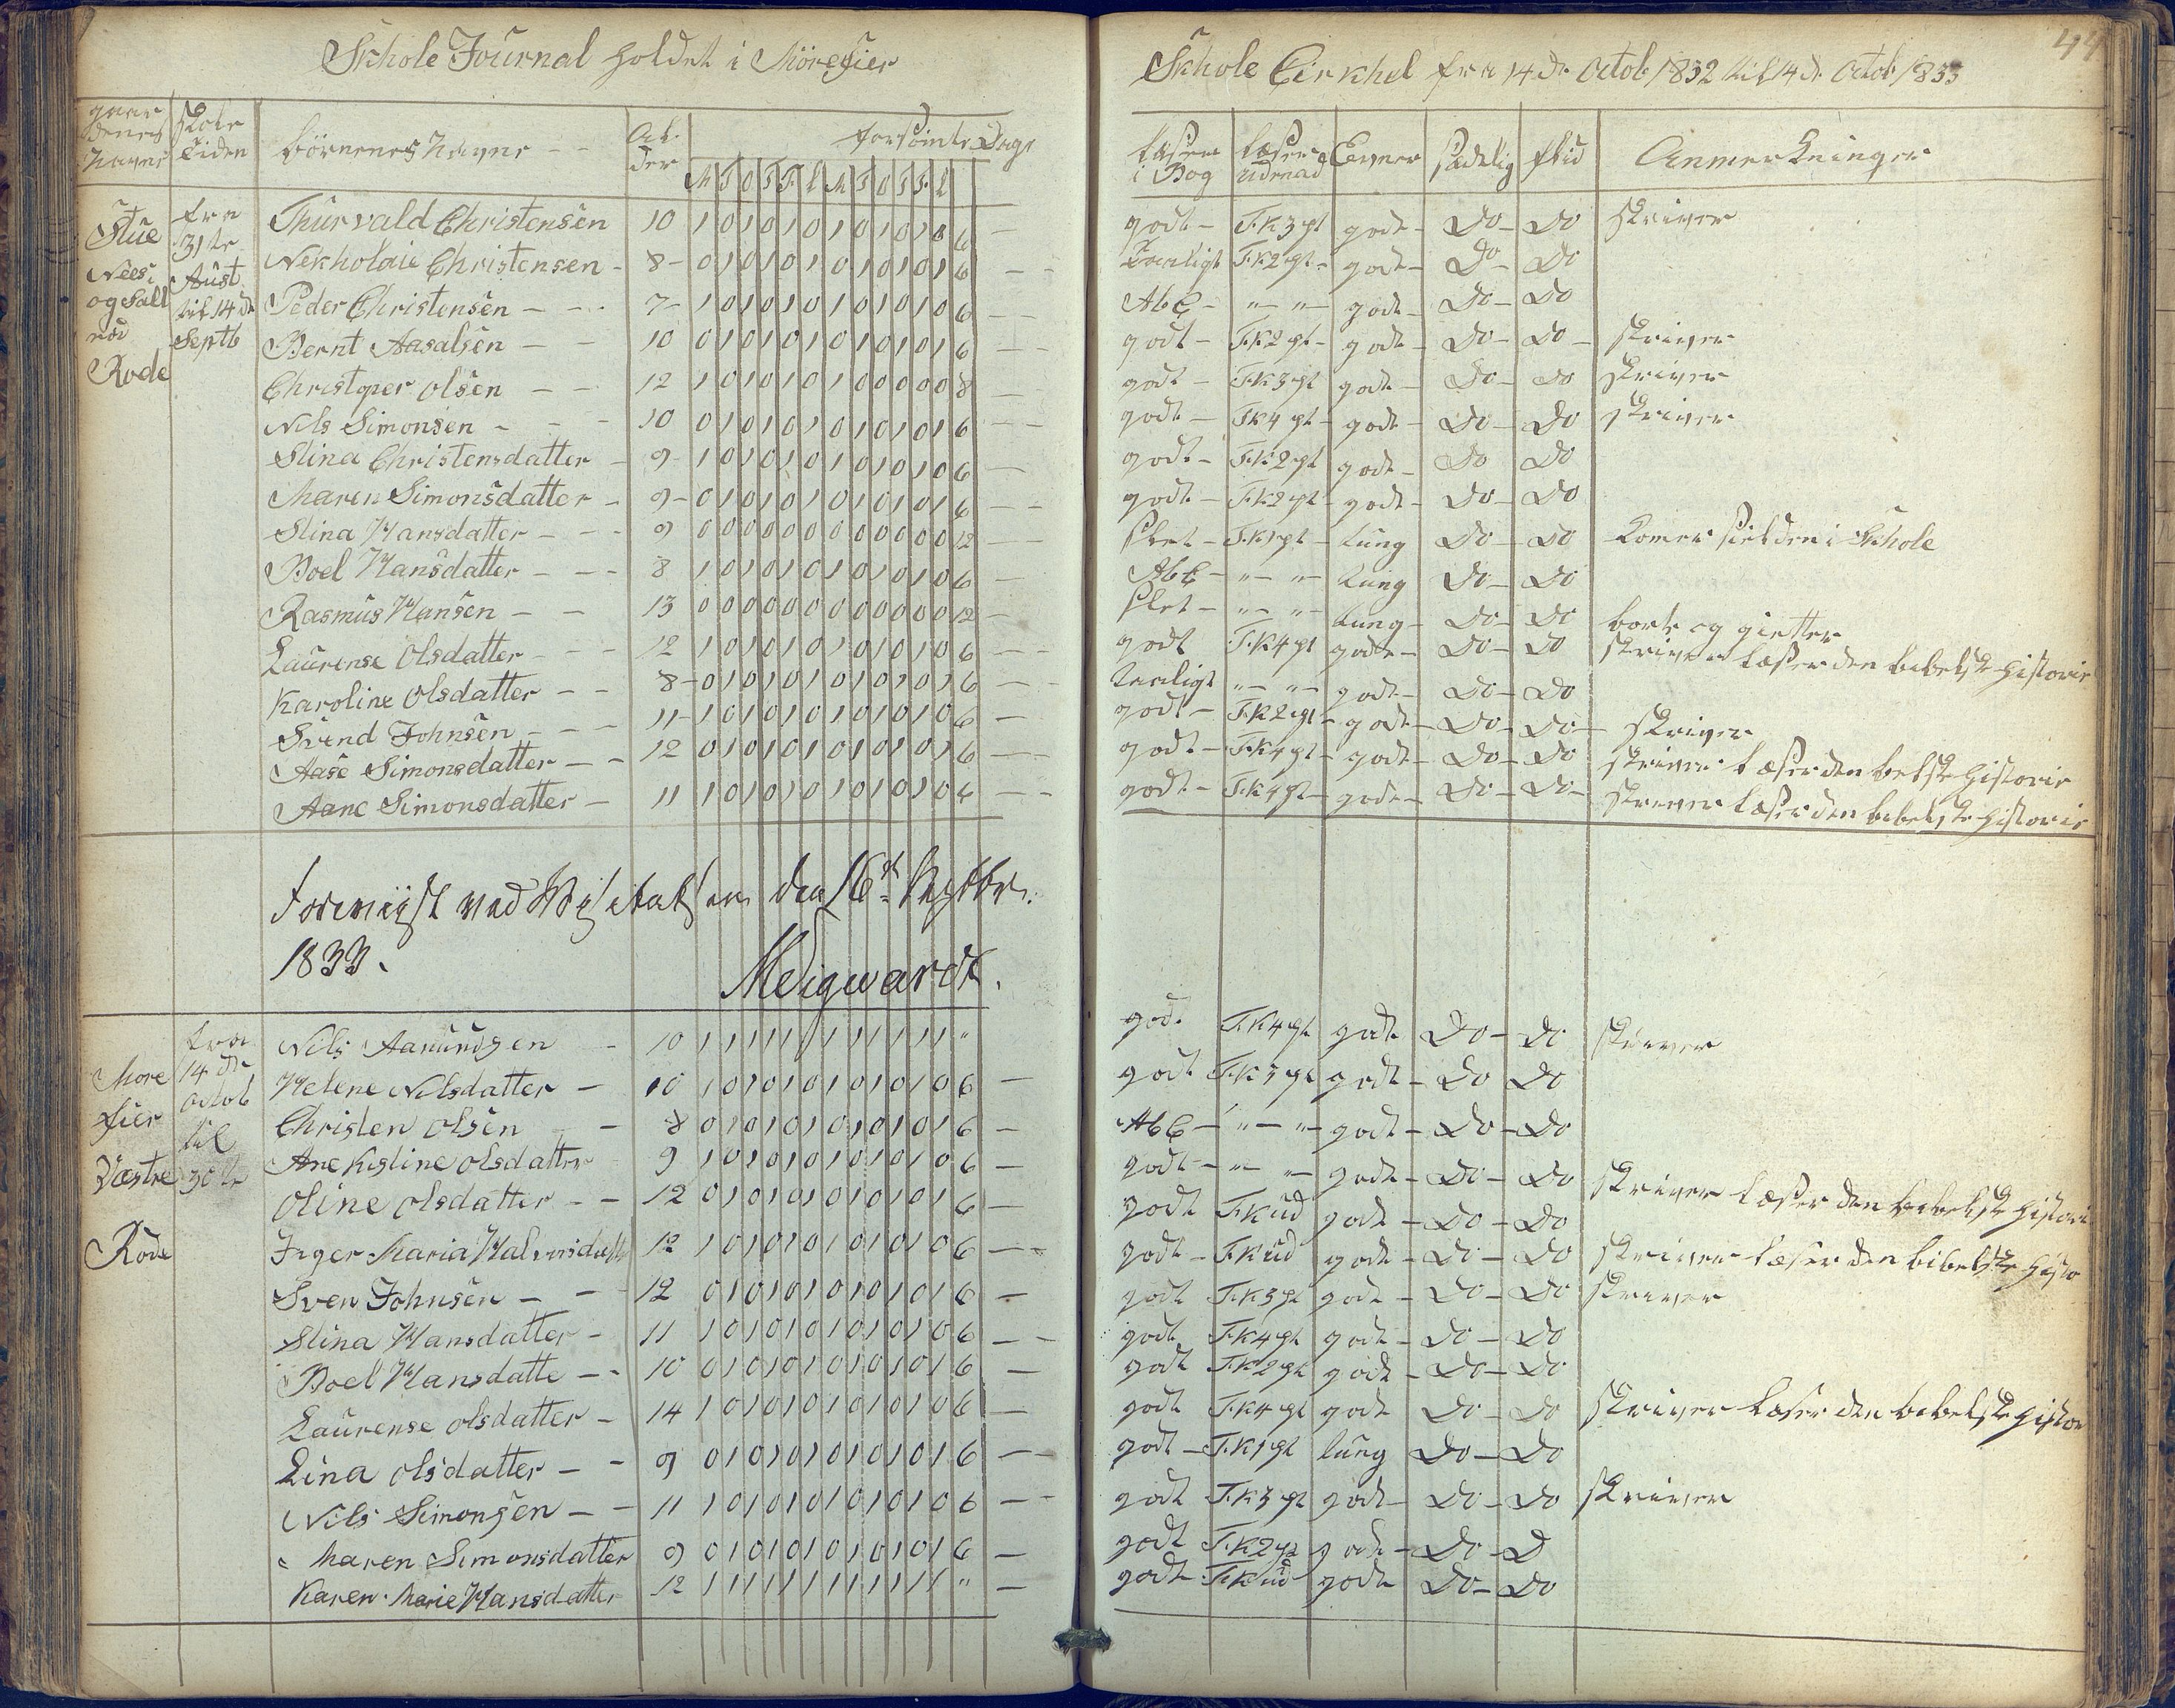 Skhole Journal holdet i Mörefier Skhole Cirkhel fra 14 de Octob 1832 til 14 de Octob 1833
44
gaardenes Navne Skole Tiden börnenes Navne Alder forsömte Dage læser i Bog læser udenad Evner sædelig flid Anmerkninger
M T O T F L M T O T F L
Stue Nees og Salt röd Rode
fra 31te Aust til 14 de Septb
Thurvald Christensen 10 1 0 1 0 1 0 1 0 1 0 1 0 6 godt T.K 3 pt godt Do Do skriver
Nekholaie Christensen 8 0 1 0 1 0 1 0 1 0 1 0 1 6 Temligt T.K 2 pt godt Do Do
Peder Christensen 7 1 0 1 0 1 0 1 0 1 0 1 0 6 AbC " " godt Do Do
Bernt Aasalsen 10 0 1 0 1 0 1 0 1 0 1 0 1 6 godt T.K 2 pt godt Do Do skriver
Christper Olsen 12 1 0 1 0 1 0 1 0 0 0 0 0 8 godt T.K 3 pt godt Do Do skriver
Nils Simonsen 10 0 1 0 1 0 1 0 1 0 1 0 1 6 godt T.K 4 pt godt Do Do skriver
Stina Christensdatter 9 1 0 1 0 1 0 1 0 1 0 1 0 6 godt T.K 2 pt godt Do Do
Maren Simonsdatter 9 0 1 0 1 0 1 0 1 0 1 0 1 6 godt T.K 2 pt godt Do Do
Stina Hansdatter 9 0 0 0 0 0 0 0 0 0 0 0 0 12 slet T.K 1 pt tung Do Do komer sielden i Skhole
Boel Hansdatter 8 1 0 1 0 1 0 1 0 1 0 1 0 6 AbC " " tung Do Do
Rasmus Hansen 13 0 0 0 0 0 0 0 0 0 0 0 0 12 slet " " tung Do Do borte og gietter
Laurense Olsdatter 12 1 0 1 0 1 0 1 0 1 0 1 0 6 godt T.K 4 pt godt Do Do skriver læser den bibelske historie
Karoline Olsdatter 8 0 1 0 1 0 1 0 1 0 1 0 1 6 temligt " " godt Do Do
Svend Johnsen 11 1 0 1 0 1 0 1 0 1 0 1 0 6 godt T.K 2 pt godt Do Do skriver
Aase Simonsdatter 12 0 1 0 1 0 1 0 1 0 1 0 1 6 godt T.K 4 pt godt Do Do skriver læser den belske historie
Aane Simonsdatter 11 1 0 1 0 1 0 1 0 1 0 1 0 6 godt T.K 4 pt godt Do Do skriver læser den bibelske historie
Foreviist ved Visitatsen den 16d Septbr.
1833.
Meigwardt.
More fier Væstre Rode
fra 14 de octob til 30te
Nils Aamundsen 10 1 1 1 1 1 1 1 1 1 1 1 1 " godt T.K 4 pt godt Do Do skriver
Helene Nilsdatter 10 1 0 1 0 1 0 1 0 1 0 1 0 6 godt T.K 3 pt godt Do Do
Christen Olsen 8 0 1 0 1 0 1 0 1 0 1 0 1 6 AbC " " godt Do Do
Ane Kistine Olsdatter 9 1 0 1 0 1 0 1 0 1 0 1 0 6 godt " " godt Do Do
Oline Olsdatter 12 0 1 0 1 0 1 0 1 0 1 0 1 6 godt T.K ud godt Do Do skriver læser den bibelske histori
Inger Maria Halvorsdatter 12 1 0 1 0 1 0 1 0 1 0 1 0 6 godt T.K ud godt Do Do skriver læser den bibelske histo
Sven Johnsen 12 0 1 0 1 0 1 0 1 0 1 0 1 6 godt T.K 3 pt godt Do Do skriver
Stina Hansdatter 11 1 0 1 0 1 0 1 0 1 0 1 0 6 godt T.K 4 pt godt Do Do
Boel Hansdatte 10 0 1 0 1 0 1 0 1 0 1 0 1 6 godt T.K 2 pt godt Do Do
Laurense Olsdatter 14 1 0 1 0 1 0 1 0 1 0 1 0 6 godt T.K 4 pt godt Do Do skriver læser den bibelske histor
Lina Olsdatter 9 0 1 0 1 0 1 0 1 0 1 0 1 6 godt T.K 1 pt tung Do Do
Nils Simonsen 11 1 0 1 0 1 0 1 0 1 0 1 0 6 godt T.K 3 pt godt Do Do skriver
Maren Simonsdatter 9 0 1 0 1 0 1 0 1 0 1 0 1 6 godt T.K 2 pt godt Do D
Karen Marie Hansdatter 12 1 1 1 1 1 1 1 1 1 1 1 1 " godt T.K ud godt Do Do